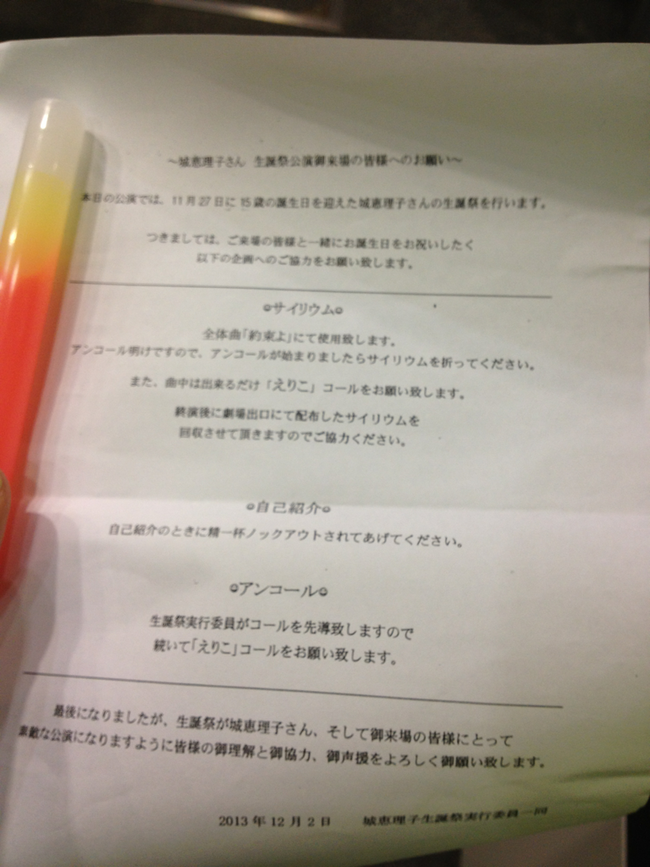 ～城恵理子さん 生誕祭公演御来場の皆様へのお願い～
本日の公演では、11月27日に15歳の誕生日を迎えた城恵理子さんの生誕祭を行います。
つきましては、ご来場の皆様と一緒にお誕生日をお祝いしたく
以下の企画へのご協力をお願い致します。
☺サイリウム☺
全体曲「約束よ」にて使用致します。
アンコール明けですので、アンコールが始まりましたらサイリウムを折ってください。
また、曲中は出来るだけ「えりこ」コールをお願い致します。
終演後に劇場出口にて配布したサイリウムを
回収させて頂きますのでご協力ください。
☺自己紹介☺
自己紹介のときに精一杯ノックアウトされてあげてください。
☺アンコール☺
生誕祭実行委員がコールを先導致しますので
続いて「えりこ」コールをお願い致します。
最後になりましたが、生誕祭が城恵理子さん、そして御来場の皆様にとって
素敵な公演になりますように皆様の御理解と御協力、御声援をよろしく御願い致します。
2013年12月2日 城恵理子生誕祭実行委員一同